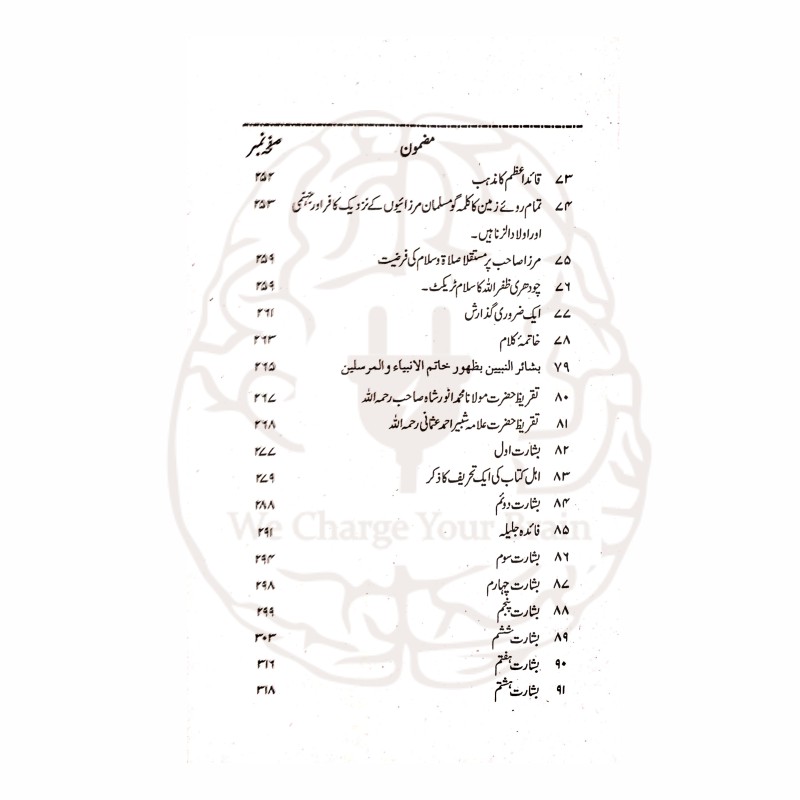 مضمون صفحہ نمبر
۷۳ قائد اعظم کا مذہب ۲۵۲
۷۴ تمام روئے زمین کا کلمہ گو مسلمان مرزائیوں کے نزدیک کافر اور جہنمی ۲۵۳
اور اولاد الزنا ہیں۔
۷۵ مرزا صاحب پر مستقلا صلاۃ وسلام کی فرضیت ۲۵۹
۷۶ چودھری ظفر اللہ کا سلام ٹریکٹ۔ ۲۵۹
۷۷ ایک ضروری گذارش ۲۶۱
۷۸ خاتمۂ کلام ۲۶۳
۷۹ بشائر النبیین بظهور خاتم الانبیاء والمرسلین ۲۶۵
۸۰ تقریظ حضرت مولانا محمد انور شاہ صاحب رحمہ اللہ ۲۶۷
۸۱ تقریظ حضرت علامہ شبیر احمد عثمانی رحمہ اللہ ۲۶۸
۸۲ بشارت اول ۲۷۷
۸۳ اہل کتاب کی ایک تحریف کا ذکر ۲۷۹
۸۴ بشارت دوئم ۲۸۸
We Charge Your Brain
۸۵ فائدہ جلیلہ ۲۹۱
۸۶ بشارت سوم ۲۹۴
۸۷ بشارت چہارم ۲۹۸
۸۸ بشارت پنجم ۲۹۹
۸۹ بشارت ششم ۳۰۳
۹۰ بشارت ہفتم ۳۱۶
۹۱ بشارت ہشتم ۳۱۸